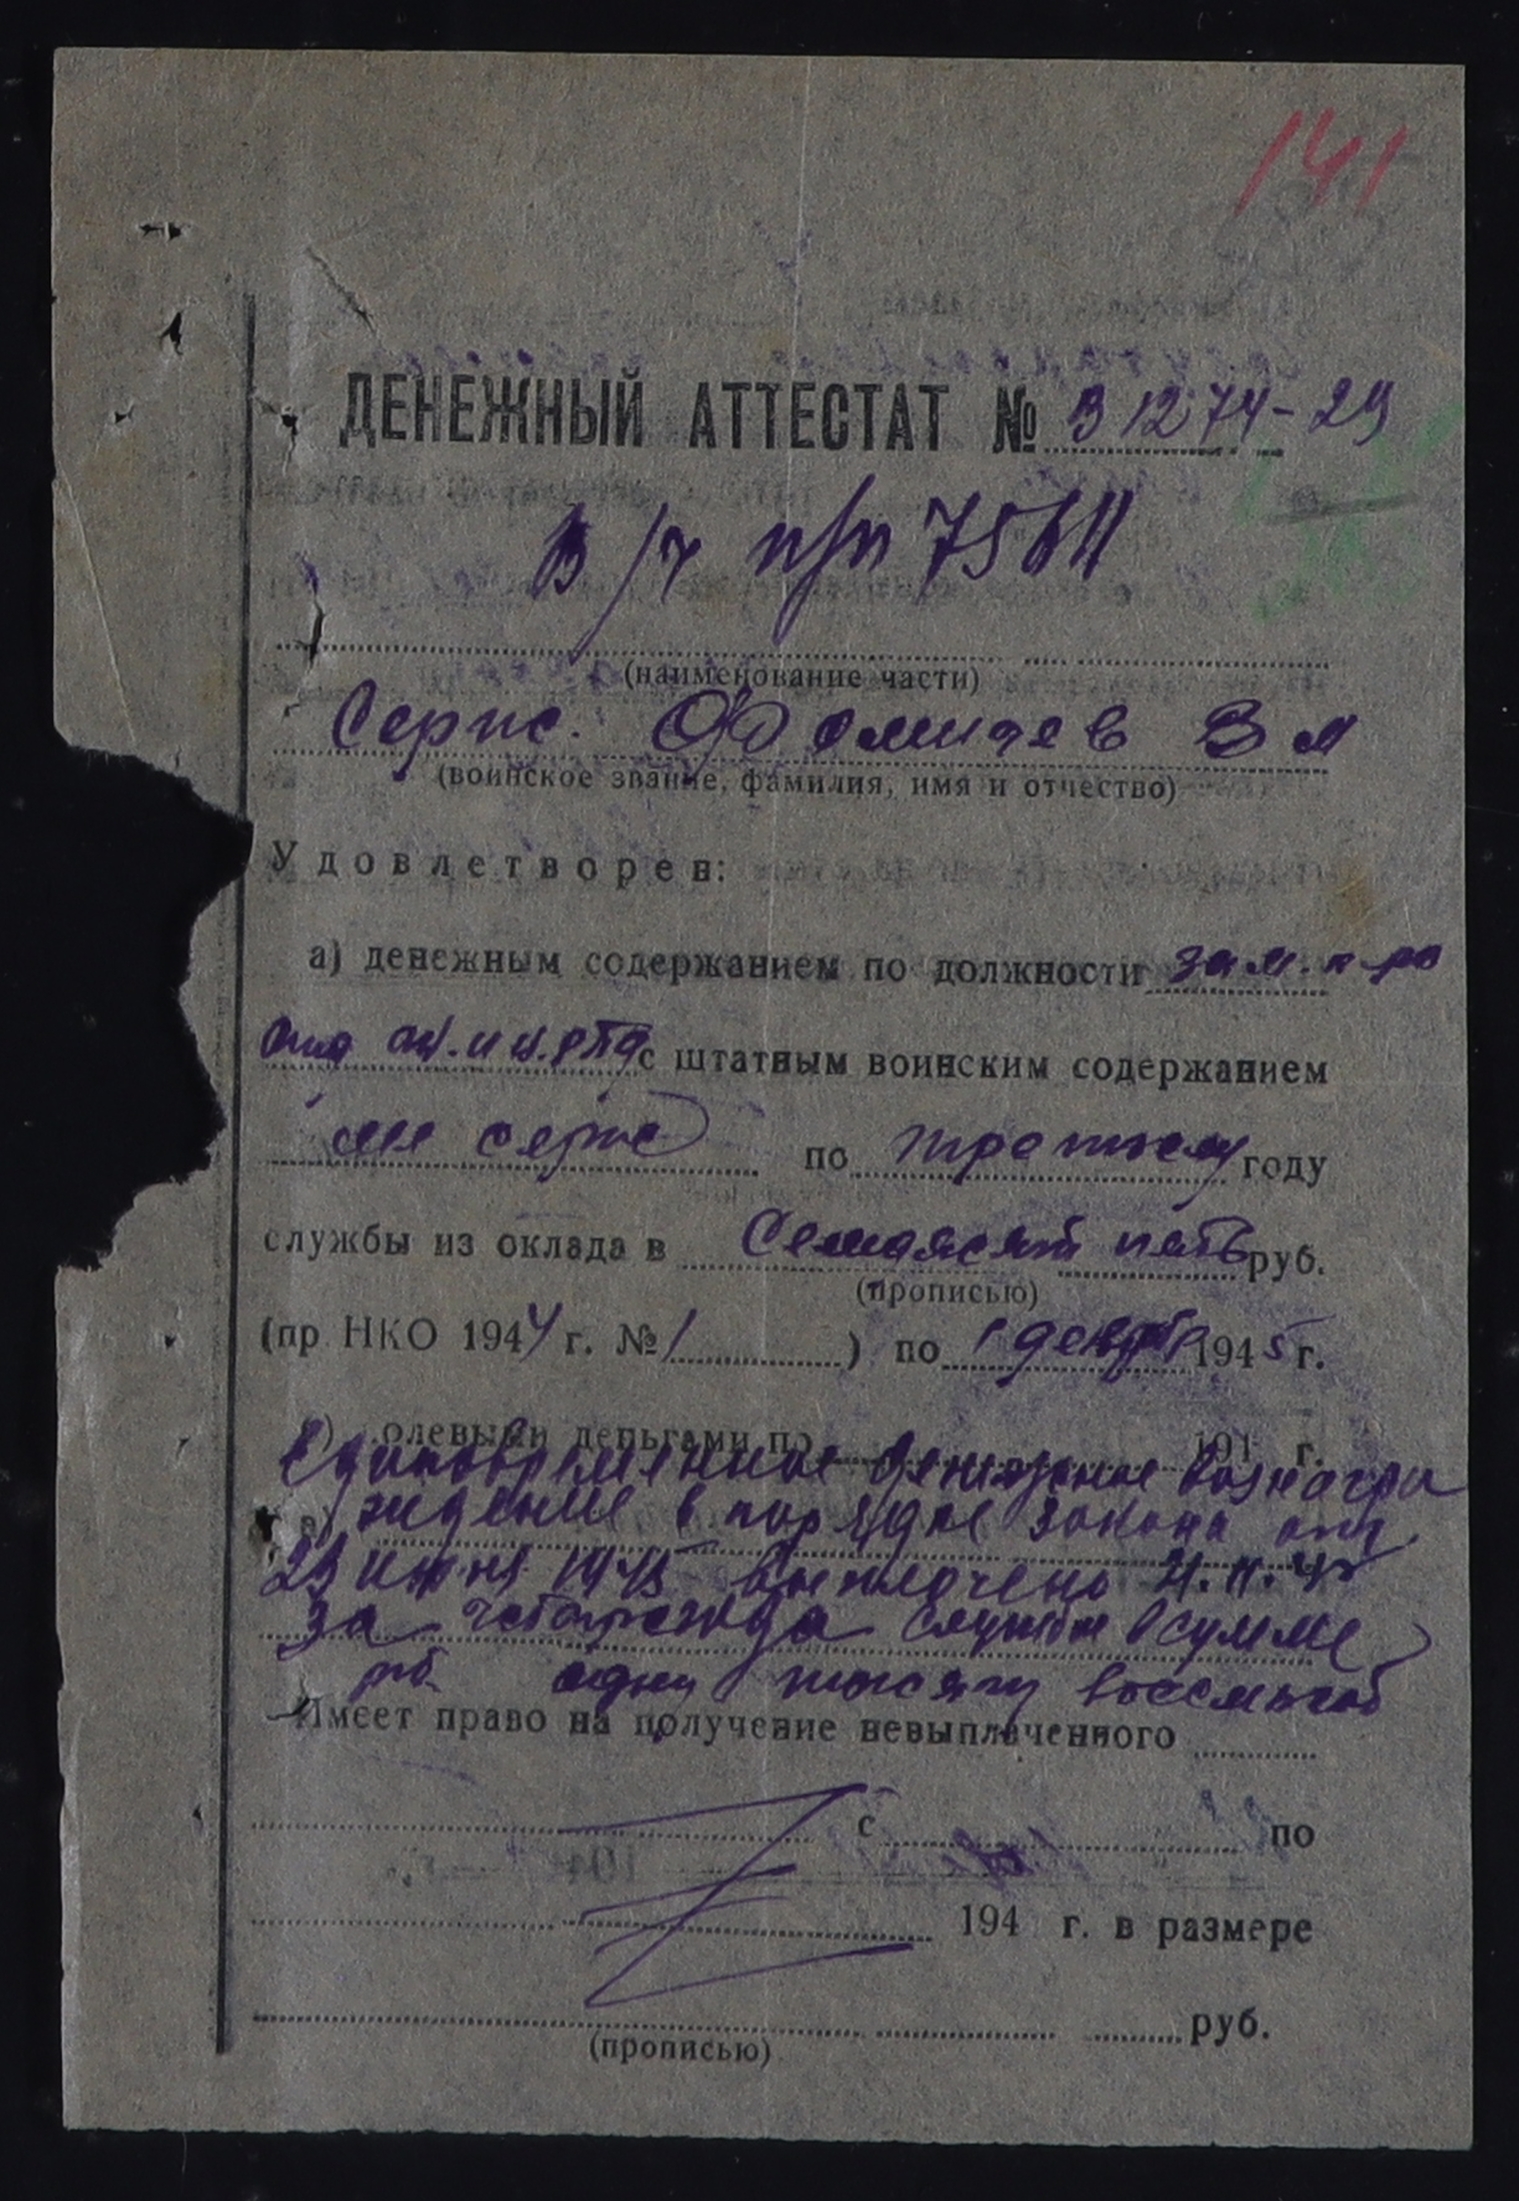 141
ДЕНЕЖНЫЙ АТТЕСТАТ № В 1274-29
В/ч п/п 75611
(наименование части)
Серж. Фомичев В М
(воинское звание, фамилия, имя и отчество)
Удовлетворен:
а) денежным содержанием по должности зам. к-ра
с штатным воинским содержанием
серж по третьему году
службы из оклада в Семьдесят пять руб.
(прописью)
(пр НКО 1944 г. № 1 ) по 1 декабря 1945 г.
олевыми деньгами по 194 г.
Единовременное денежное вознагра
ждение в порядке закона от
23 июня 1945 выплачено
за службы в сумме
рб. одну тысячу восемьсот
Имеет право на получение невыплаченного
с по
194 г. в размере
руб.
(прописью)